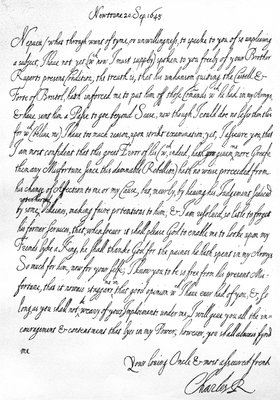 Newtoune 20 Sep 1645
Nepueu, what through want of tyme, or unwillingness, to speake to you of so unpleasing
a subject, I have not yet (w^ch now I must supply) spoken to you freely of your Brother
Ruperts present condition, the treuth is, that his unhansom quitting the Castell &
Forte of Bristol, hath inforced me to put him of those Comands w^ch he had in my Armys
& have sent him a Passe to goe beyond Seas, now though I could doe no lesse then this
for w^ch (believe me) I have too much reason, upon strickt examination, yet, I assure you, that
I am most confident that this great Error of his (w^ch indeed, hath given me more Griefe
then any Misfortune since this damnable Rebellion) hath no waies proceeded from
his change of affection to me or my Cause, but, meerly, by having his Judgement seduced
by some rotten harted Vilaines, making faire pretentions to him, & I am resolved, so litle to forgett
his former services, that, whensoever it shall please God to enable me to looke upon my
Frends lyke a King, he shall thanke God for the paines he hath spent in my Armys
So much for him, now for your selfe, I know you to be so free from his present Mis-
fortune, that it nowais staggers me in that good opinion w^ch I have ever had of you, & so
long as you shall not be weary of your Imployments under me, I will give you all the in-
couragement & contentment that lyes in my Power, however, you shall alwaies fynd
me
Your loving Oncle & most asseured frend
Charles R